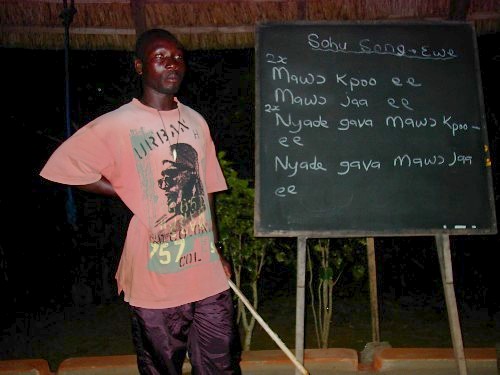 Sohu Song → Ewe
2x
Mawɔ kpoo ee
Mawɔ jaa ee
2x
Nyade gava mawɔ kpoo –
ee
Nyade gava mawɔ jaa
ee
URBAN
957
COL